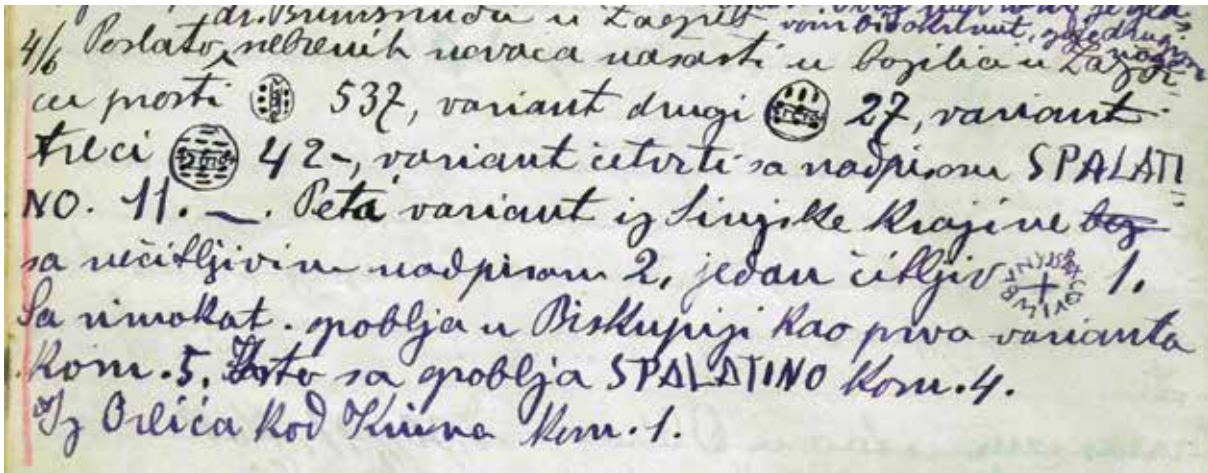 dr. Brunšmidu u Zagreb
4/6 Poslato srebrenih novaca našasti u bazilici u
cu prosti 537, variant drugi 27, variant
treći 42-, variant četvrti sa nadpisom SPALATI
NO. 11. —. Peta variant iz Sinjske Krajine bez
sa nečitljivim nadpisom 2, jedan čitljiv 1.
Sa rimokat. groblja u Biskupiji Kao prva varianta
Kom. 5. Isto sa groblja SPALATINO Kom. 4.
Iz Orlića Kod Knina Kom. 1.